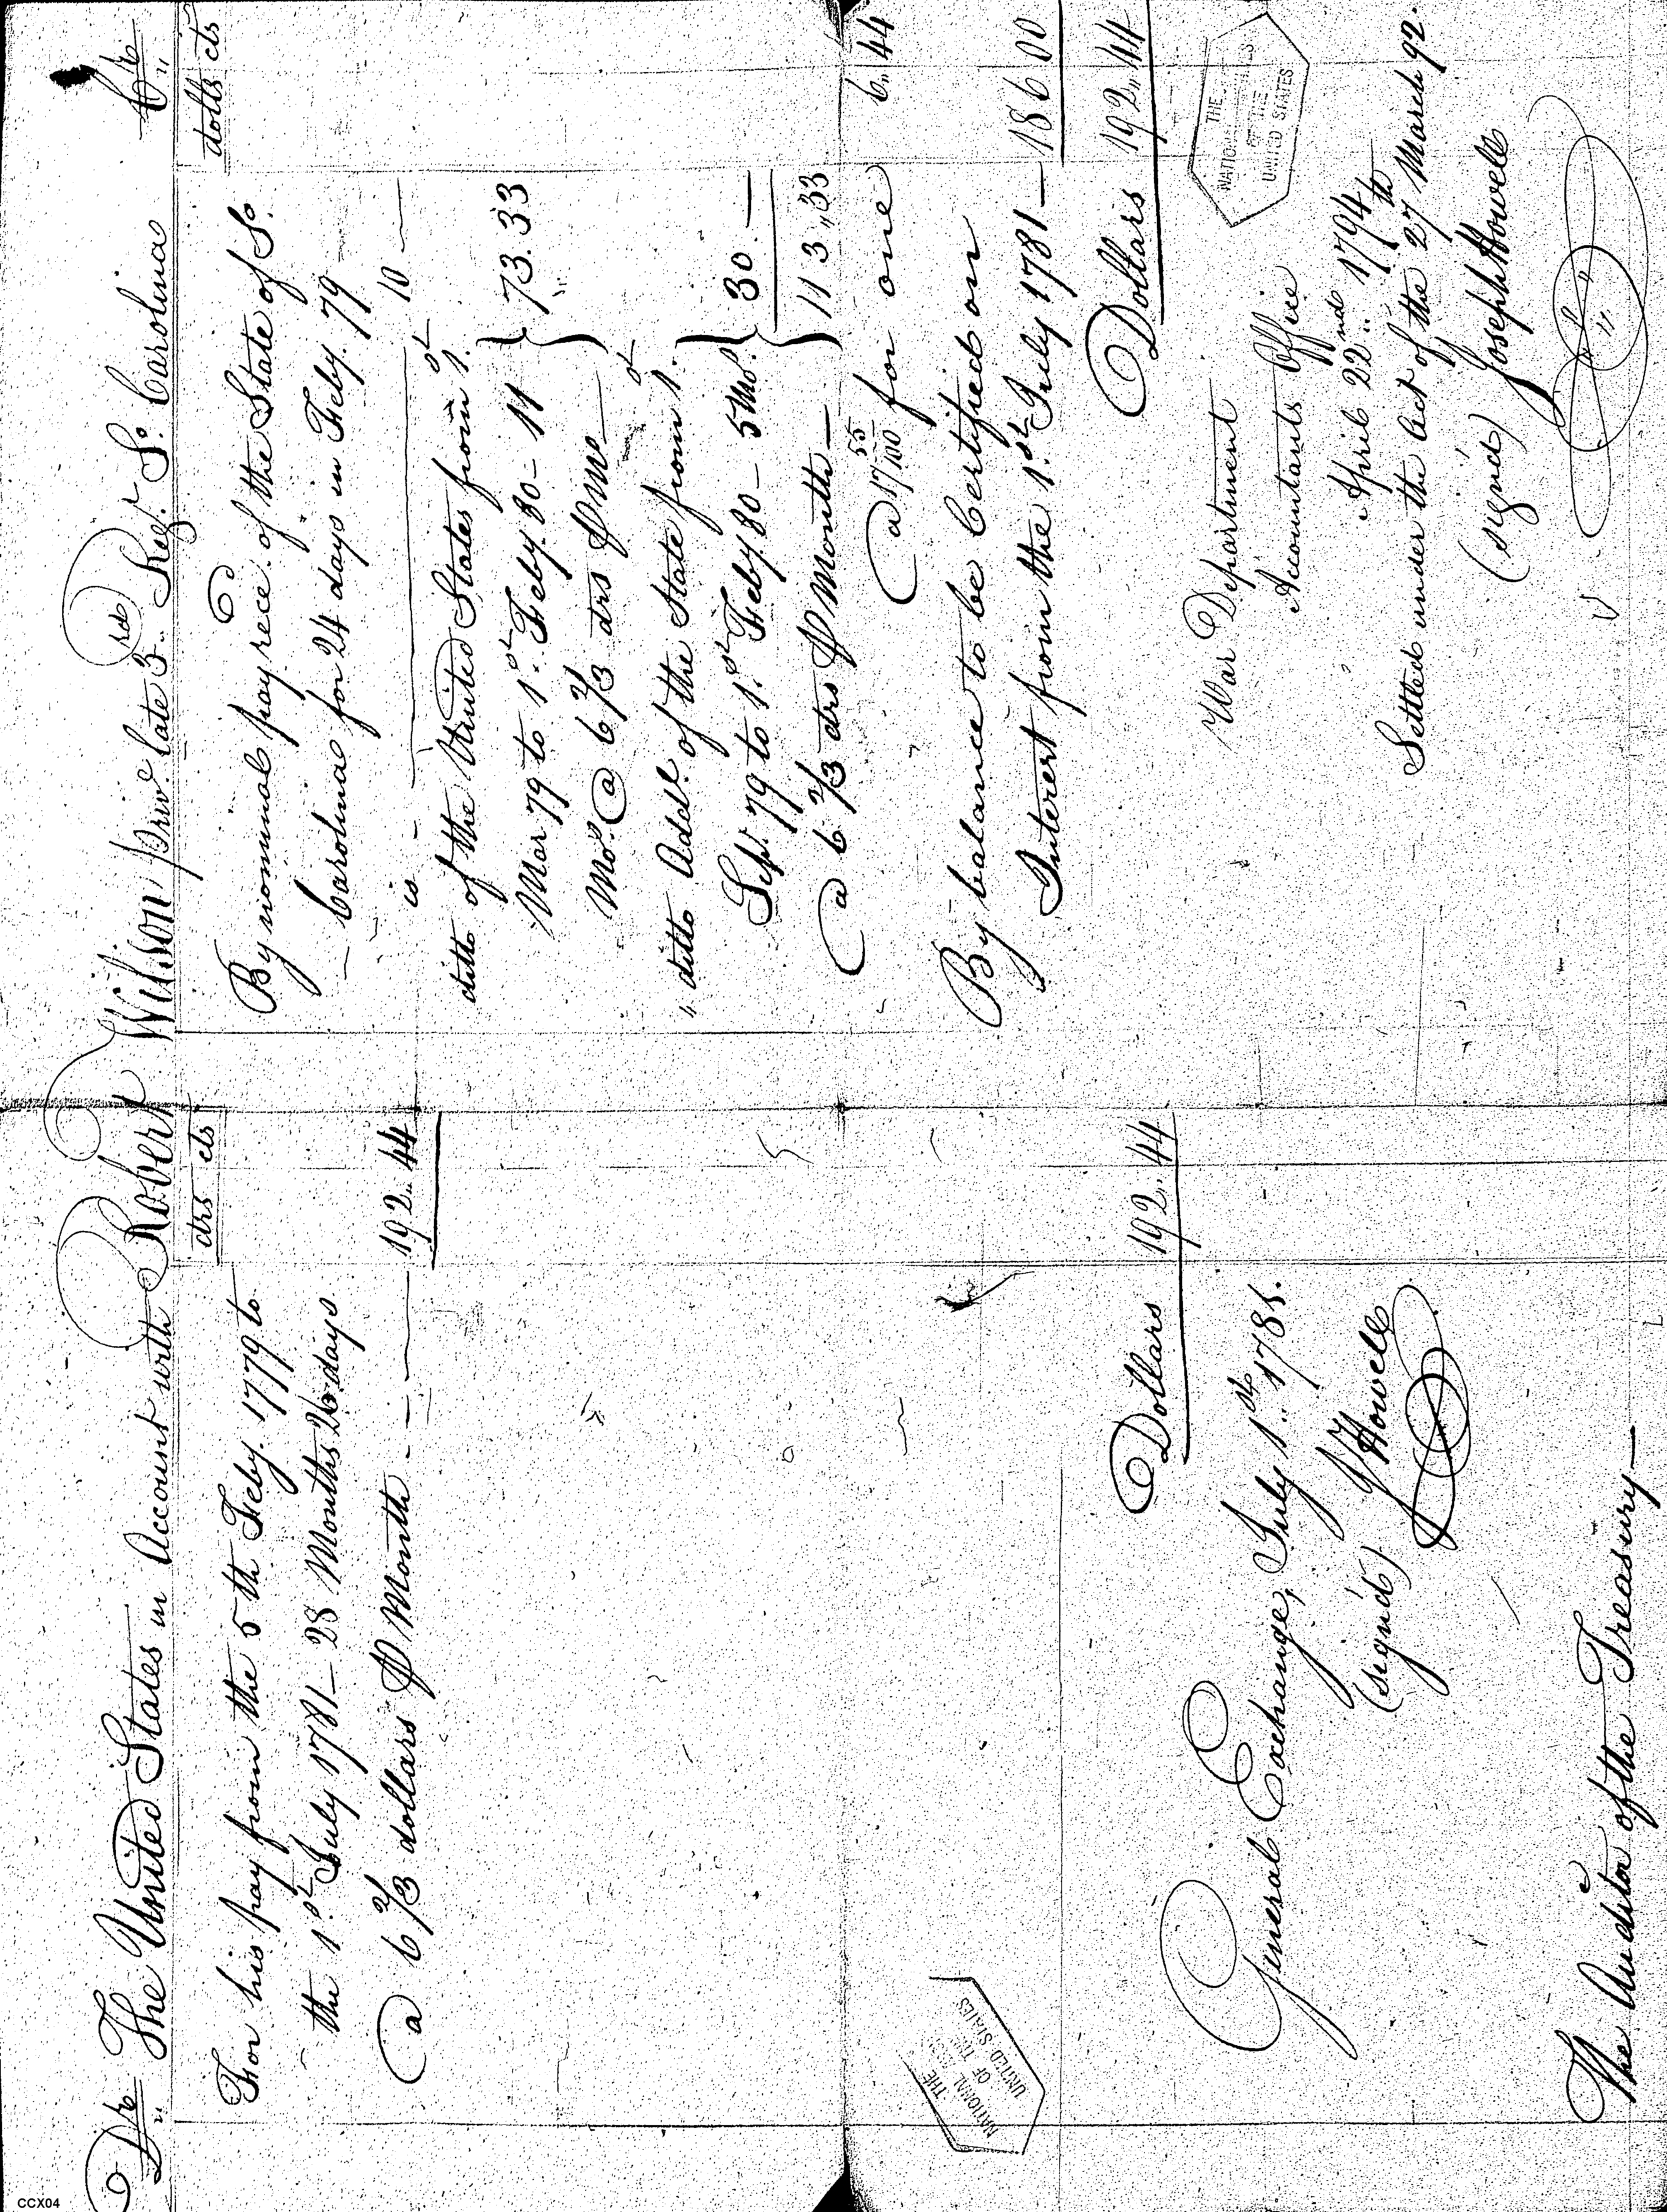 Dr The United States in Account with Robert Wilson priv.e late 3rd Reg.t So. Carolina Cr
drs cts
For his pay from the 5th Feby. 1779 to
the 1st July 1781 - 28 Months 26 days
@ 6 2/3 dollars ⅌ Month - 192,, 44
Dollars 192,, 44
General Exchange, July 1st 1781.
(sign'd) J Howell
The Auditor of the Treasury
dolls cts
By nominal pay rece.d of the State of So.
Carolina for 24 days in Feby. 79
is - 10 —
ditto of the United States from 1st
Mar 79 to 1st Feby. 80 - 11
Mos. @ 6 2/3 drs ⅌ mo } 73.33
" ditto Addl. of the State from 1st
Sept. 79 to 1st Feby. 80 - 5 Mos.
@ 6 2/3 drs ⅌ Month — } 30.—
113,,33
@ 17 55/100 for one 6,, 44
By balance to be Certified on
Interest from the 1st July 1781 — 186 00
Dollars 192,, 44
War Department
Accountants Office
April 22nd 1794
Settled under the Act of the 27th March 92.
(signd) Joseph Howell
THE NATIONAL ARCHIVES
OF THE
UNITED STATES
THE
NATIONAL
OF THE
UNITED STATES
CCX04